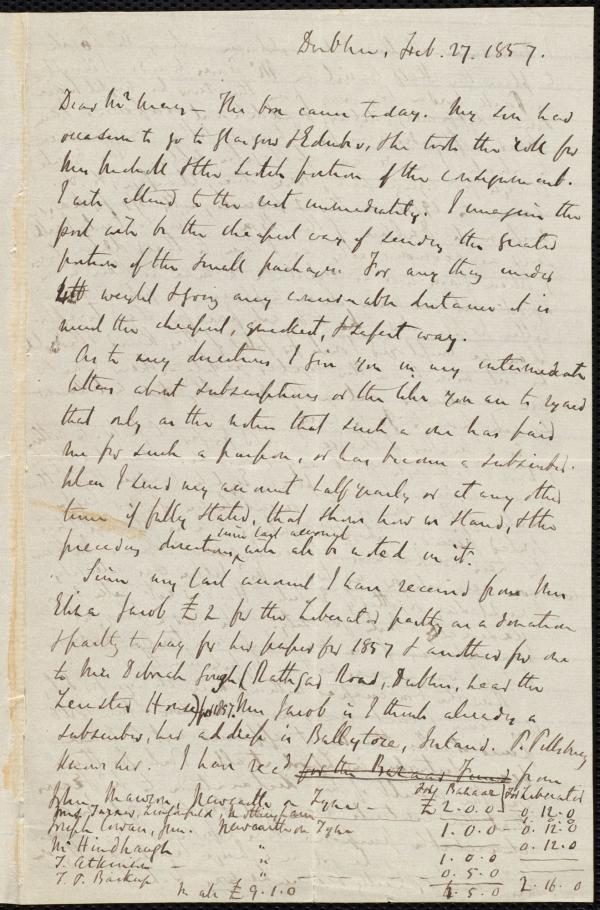 Dublin, Feb. 27. 1857.
Dear Mr May — The box came today. My son had
occasion to go to Glasgow & Edinbro, & he took the roll for
Miss Nichell & the Scotch portion of the consignment.
I will attend to the rest immediately. I imagine the
post will be the cheapest way of sending the greater
portion of the small packages. For any thing under
weight & going any considerable distance it is
much the cheapest, quickest, & safest way.
As to any directions I give you in my intermediate
letters about subscriptions or the like you are to regard
that only as the notice that such a one has paid
me for such a purpose, or has become a subscriber.
When I send my account half yearly or at any other
time if fully stated, that shows how we stand, & the
preceding directions since last account will all be noted in it.
Since my last account I have received from Mrs
Eliza Jacob £2 for the Liberator partly as a donation
& partly to pay for her paper for 1857 & another for one
to Miss Deborah Gough (Rathgar Road, Dublin, near the
Leinster House) for 1857. Mrs Jacob is I think already a
subscriber, her address is Ballytore, Ireland. P. Pillsbury
knows her. I have recd for the Bazaar Fund from
For Bazaar | For Liberator
John Mawson, Newcastle on Tyne — £ 2.0.0 0.12.0
Nottingham
Joseph Cowen, Jun. Newcastle on Tyne 1.0.0 — 0.12.0
Mr Hindhaugh " 0.12.0
T. Atkinson — " 1.0.0
T. P. Barkup " 0.5.0
In all £9.1.0 5.0 2.16.0